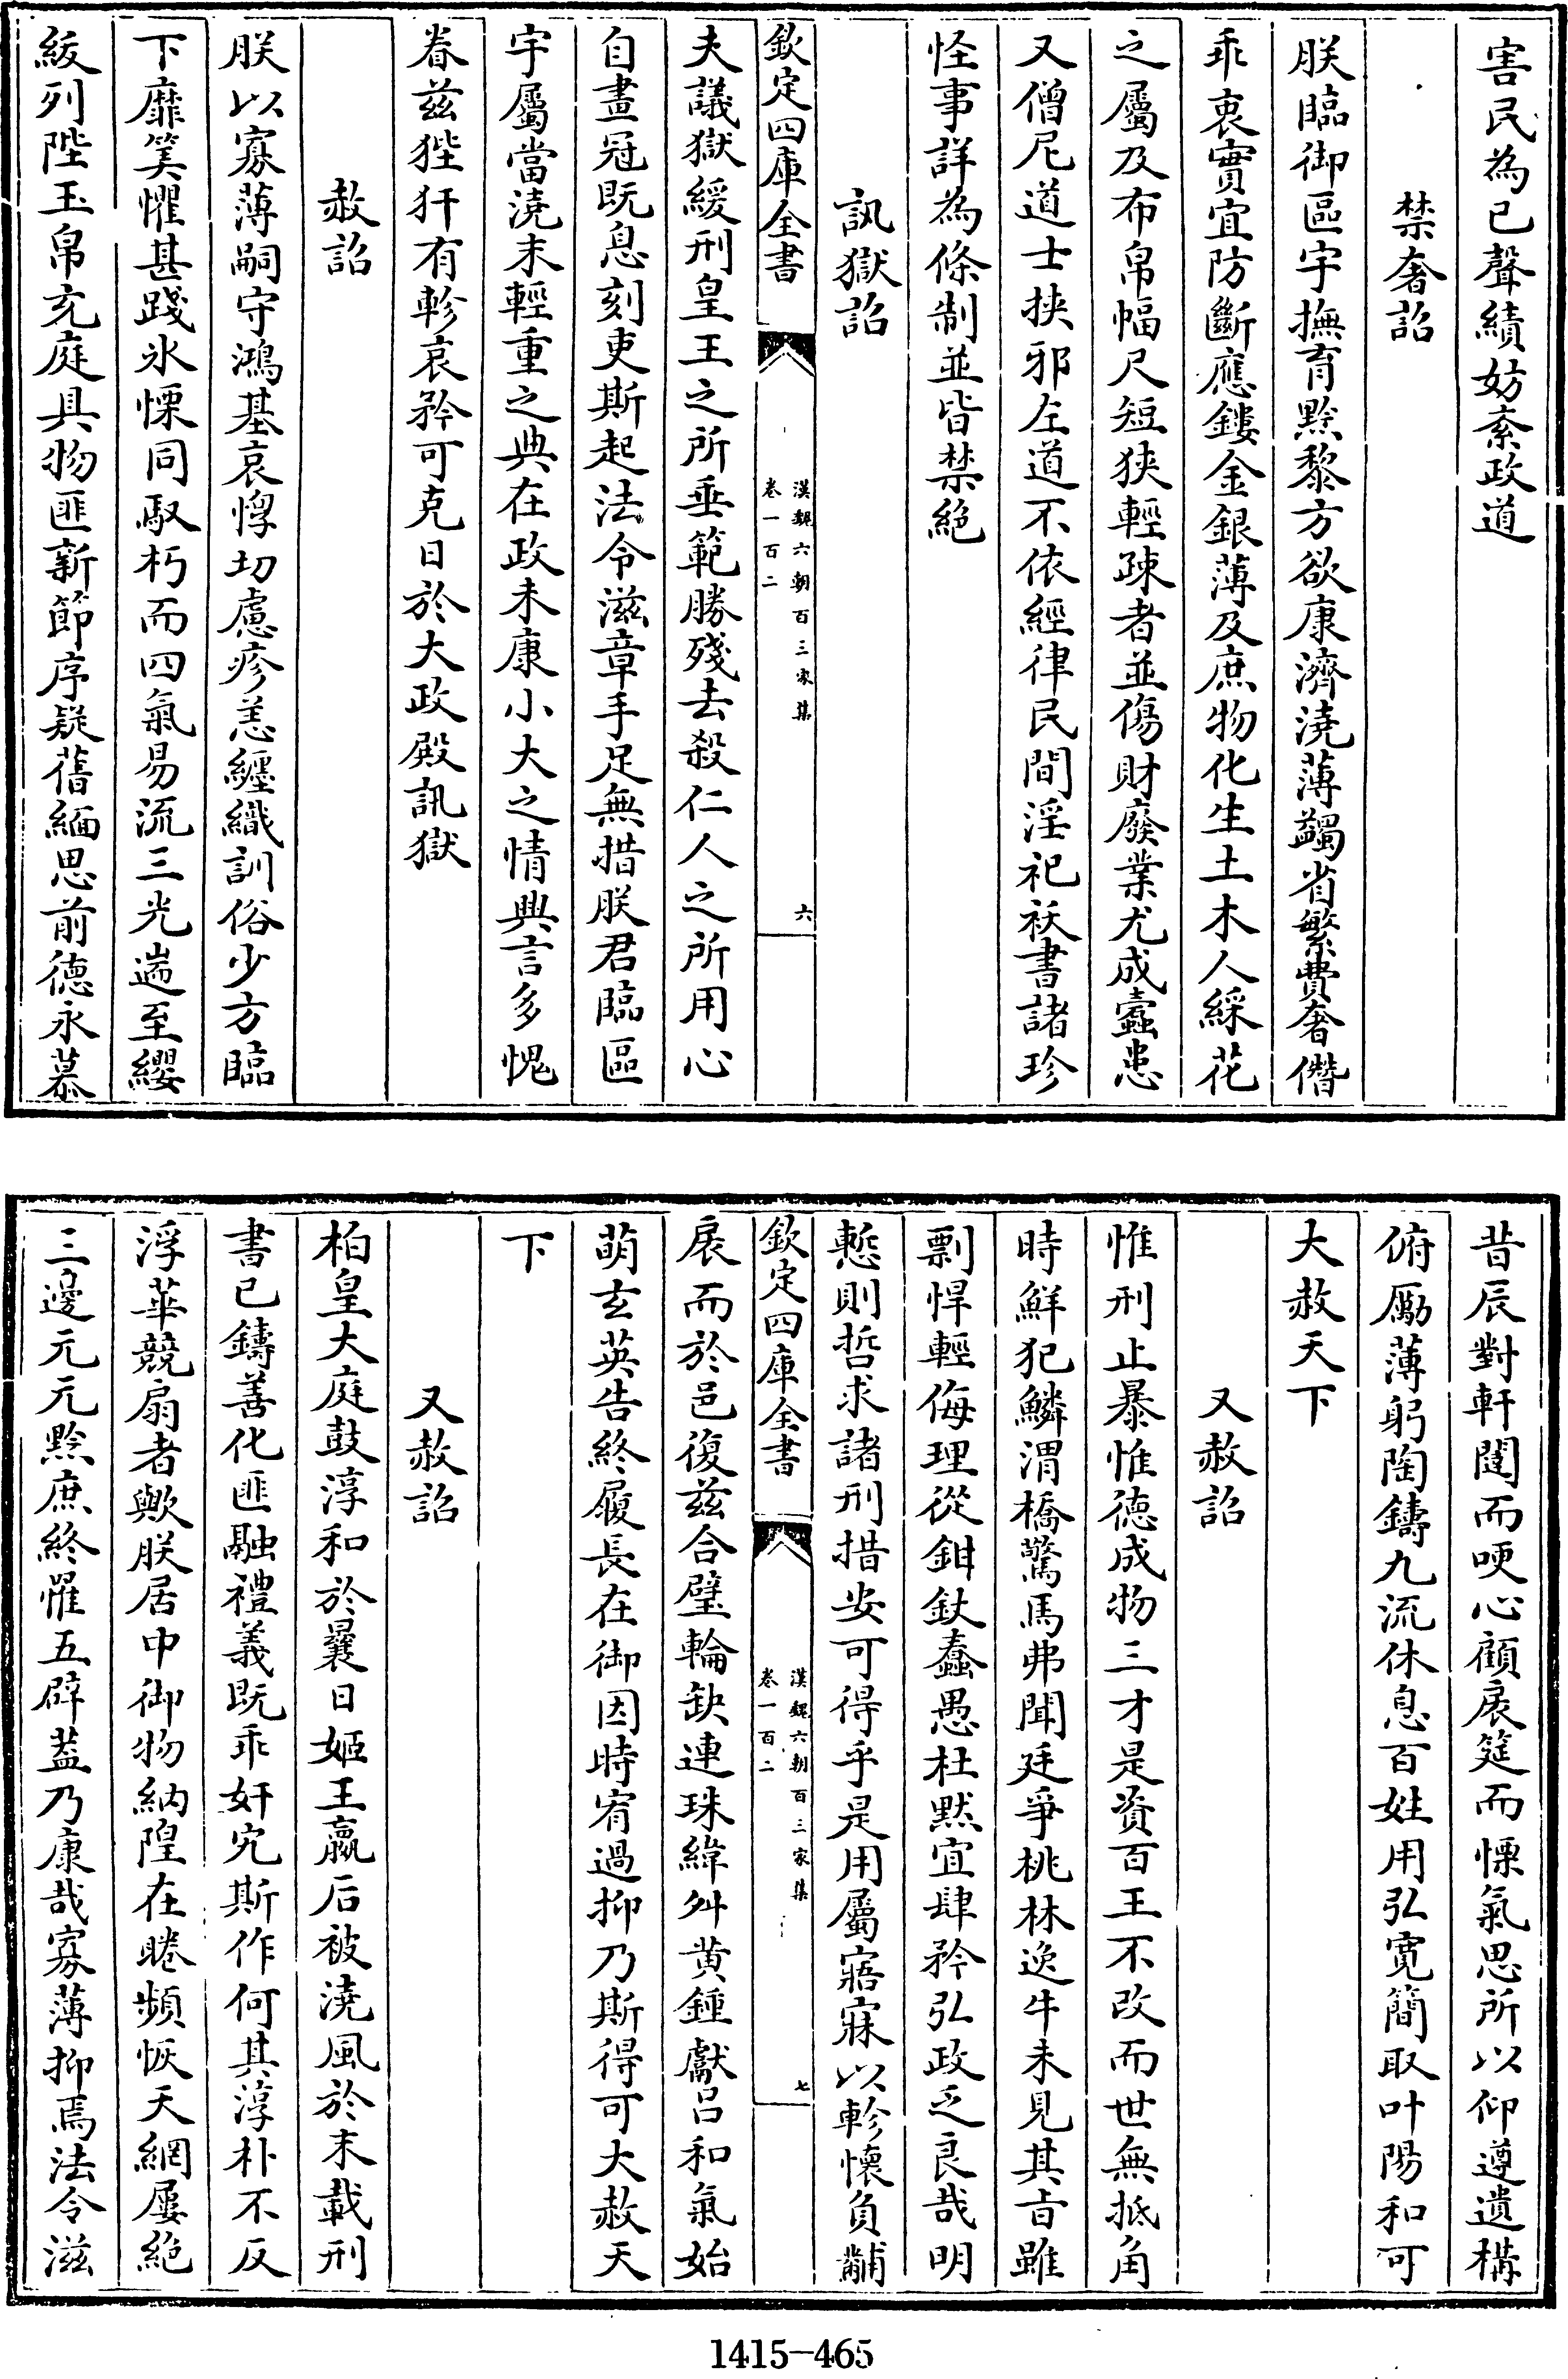 害民為已聲績妨紊政道
禁奢詔
朕臨御區宇撫育黔黎方欲康濟澆薄蠲省繁費奢僭
乖衷實宜防斷應鏤金銀薄及庶物化生土木人綵花
之屬及布帛幅尺短狹輕疎者並傷財廢業尤成蠹患
又僧尼道士挾邪左道不依經律民間淫祀祅書諸珍
怪事詳為條制並皆禁絶
訊獄詔
欽定四庫全書
漢魏六朝百三家集
卷一百二
六
夫議獄緩刑皇王之所垂範勝殘去殺仁人之所用心
自畫冠既息刻吏斯起法令滋章手足無措朕君臨區
宇屬當澆末輕重之典在政未康小大之情興言多愧
眷兹狴犴有軫哀矜可克日於大政殿訊獄
赦詔
朕以寡薄嗣守鴻基哀惸切慮疹恙纒織訓俗少方臨
下靡筭懼甚踐氷慄同馭朽而四氣易流三光遄至纓
紱列陛玉帛充庭具物匪新節序疑舊緬思前德永慕
昔辰對軒闥而哽心顧扆筵而慄氣思所以仰遵遺構
俯勵薄躬陶鑄九流休息百姓用弘寛簡取叶陽和可
大赦天下
又赦詔
惟刑止暴惟德成物三才是資百王不改而世無抵角
時鮮犯鱗渭橋驚馬弗聞廷爭桃林逸牛未見其㫖雖
剽悍輕侮理從鉗釱蠢愚杜默宜肆矜弘政乏良哉明
慙則哲求諸刑措安可得乎是用屬寤寐以軫懷負黼
欽定四庫全書
漢魏六朝百三家集
卷一百二
七
扆而於邑復兹合璧輪缺連珠緯舛黄鍾獻吕和氣始
萌玄英告終履長在御因時宥過抑乃斯得可大赦天
下
又赦詔
柏皇大庭鼓淳和於曩日姬王嬴后被澆風於末載刑
書已鑄善化匪融禮義既乖奸宄斯作何其淳朴不反
浮華競扇者歟朕居中御物納隍在睠頻恢天網屢絶
三邊元元黔庶終罹五辟蓋乃康哉寡薄抑焉法令滋
1415-465